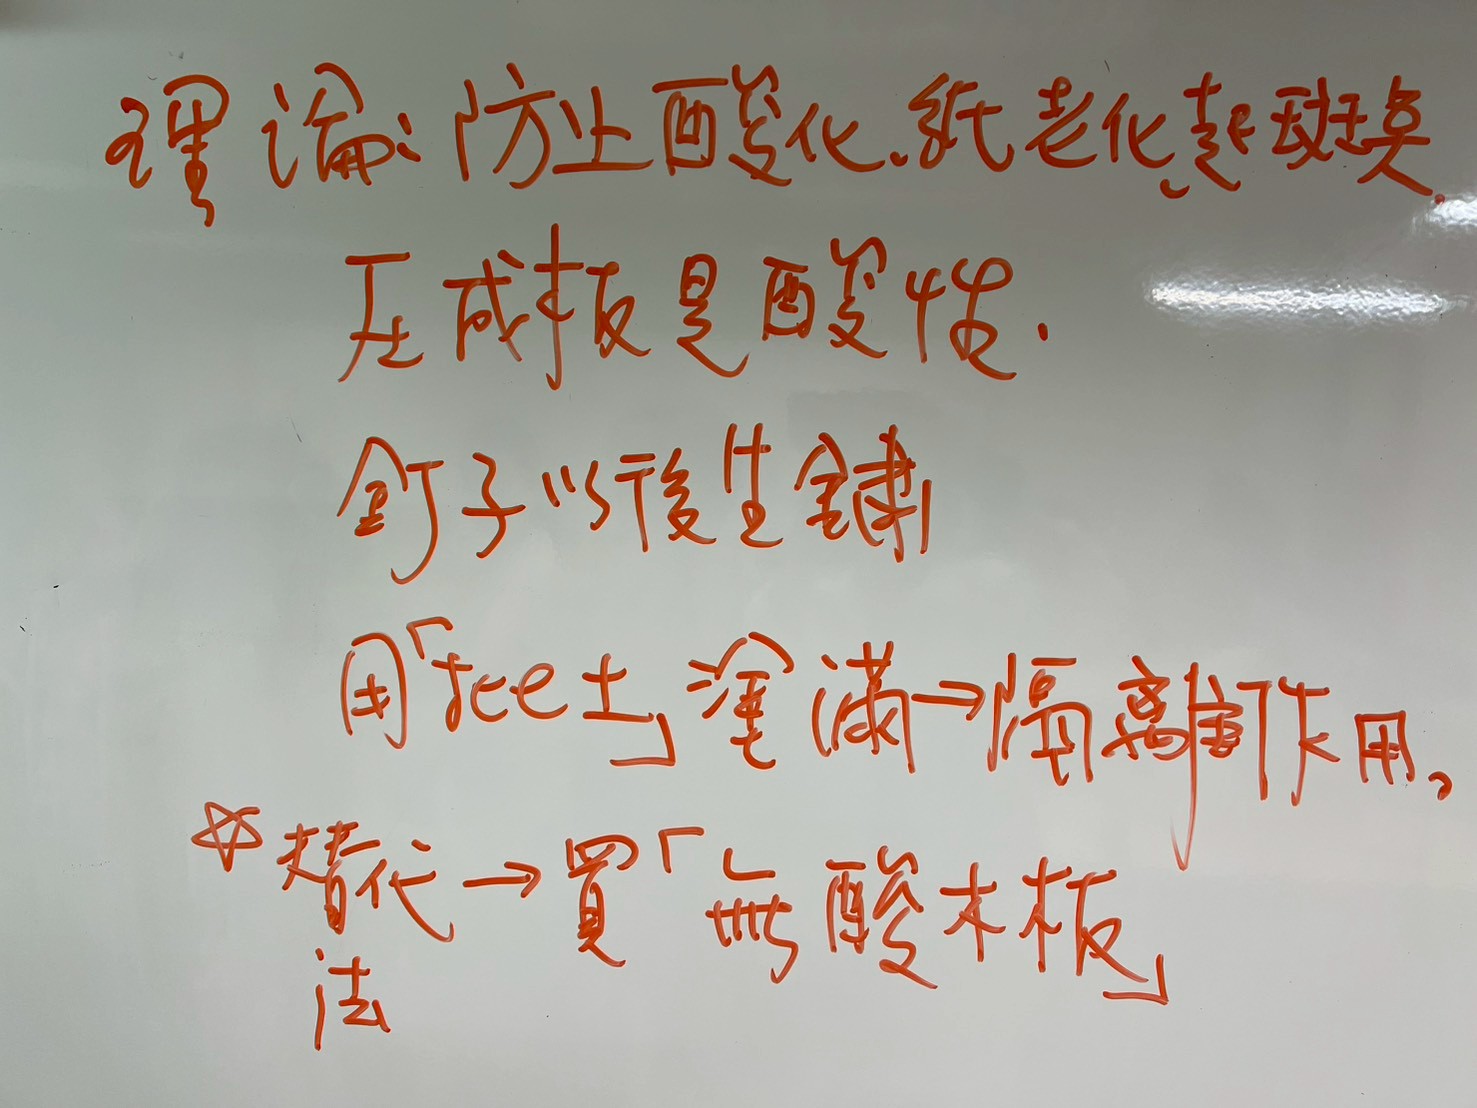 理論:防止酸化、紙老化、起斑點.
压成板是酸性.
釘子以後生鏽
用「批土」塗滿→隔離作用。
☆替代法→買「無酸木板」